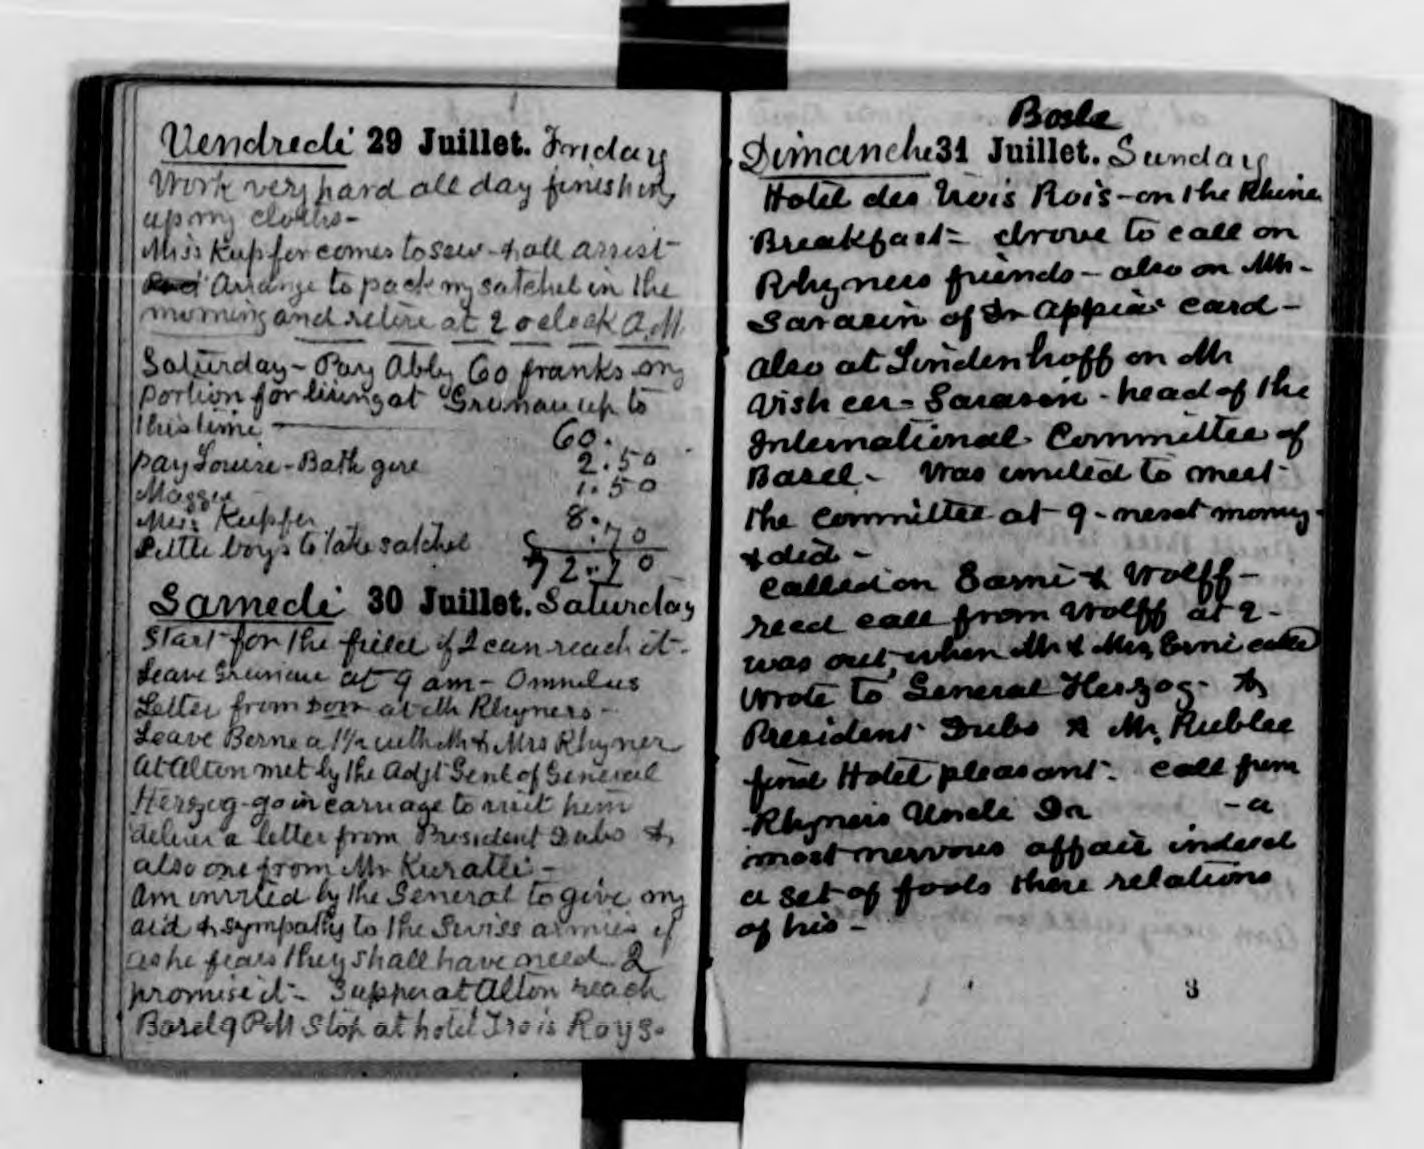 Vendredi 29 Juillet. Friday
Work very hard all day finishing
up my cloths-
Miss Kupfer comes to sew - & all assist
Arrange to pack my satchel in the
morning and retire at 2 oclock A.M.
Saturday - Pay Abby 60 franks my
portion for living at Grunau up to
this time 60.
pay Louise - Bath 2.50
Maggie 1.50
Miss Kupfer 8.
Little boys to take satchel .70
72.70
Samedi 30 Juillet. Saturday
Start for the field if I can reach it-
Leave Grunau at 9 am - Omnibus
Letter from at Mr Rhyners -
Leave Berne a 1½ with Mr & Mrs Rhyner
At Alton met by the Adjt Genl of General
Herzog - go in carriage to visit him
deliver a letter from President Dubs &
also one from Mr Kuratli -
Am invited by the General to give my
aid & sympathy to the Swiss armies if
as he fears they shall have need I
promise it - Supper at Alton reach
Basel 9 P.M stop at hotel Trois Roys.
Basle
Dimanche 31 Juillet. Sunday
Hotel des Trois Rois - on the Rhine
Breakfast = drove to call on
Rhyners friends - also on Mr -
Sarasin of Dr Appias card -
also at Lindenhoff on Mr
Vischer = Sarasin - head of the
International Committee of
Basel - Was invited to meet
the committee at 9 - next morng -
& did -
Called on & Wolff -
recd call from Wolff at 2 -
was out when Mr & Mrs called
Wrote to General Herzog - &
President Dubs & Mr. Rublee
find Hotel pleasant. Call from
Rhyners Uncle Dr - a
most nervous affair indeed
a set of fools these relations
of his -
3